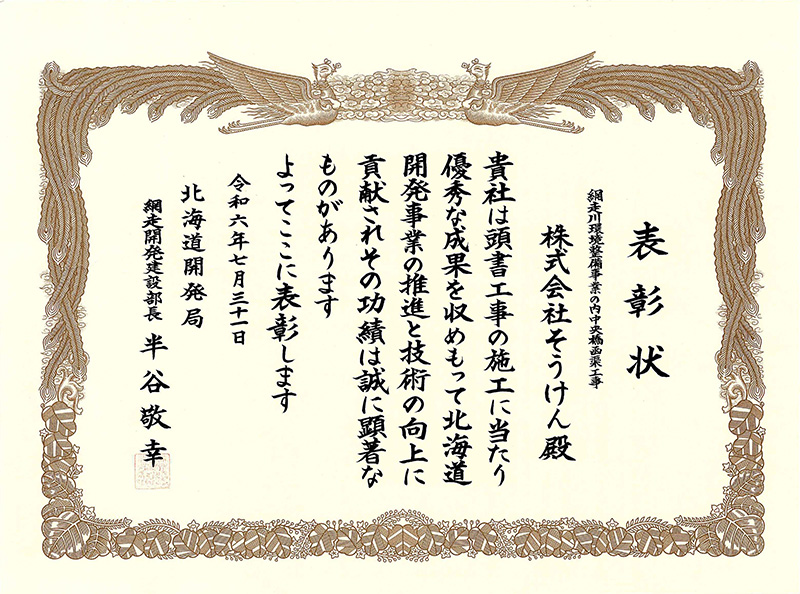 表彰状
網走川環境整備事業の内中央橋函渠工事
株式会社そうけん殿
貴社は頭書工事の施工に当たり
優秀な成果を収めもって北海道
開発事業の推進と技術の向上に
貢献されその功績は誠に顕著な
ものがあります
よってここに表彰します
令和六年七月三十一日
北海道開発局
網走開発建設部長 半谷敬幸